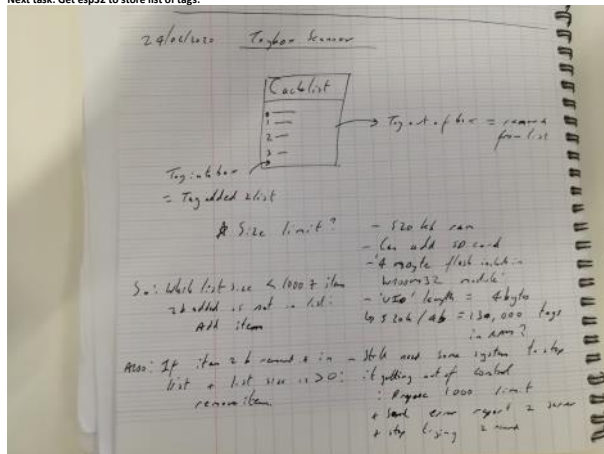 Next task: Get esp32 to store list of tags.
24/02/2020 Toybox Scanner
Cachlist
0 —
1 —
2 —
3 —
→ Toy out of box = removed
from list
Toy into box
= Tag added 2 list
Size limit?
- 520 kb ram
- Can add SD card
- '4 mbyte flash include in
wroom32 module'
- 'UID' length = 4 bytes
↳ 520k / 4b = 130,000 tags
in RAM?
So: While list size < 1000 & item
2b added is not in list:
Add item
Also: If item 2b removed is in
list & list size is >0:
remove item
- Still need some system to stop
it getting out of control
: Propose 1000 limit
+ Send error report 2 server
+ stop trying 2